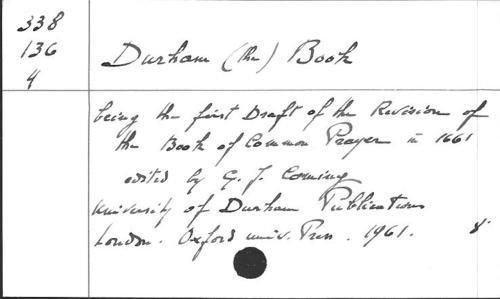 338
136
4
Durham (the) Book
being the first Draft of the Revision of
the Book of Common Prayer in 1661
edited by G. J. Cuming
University of Durham Publications
London. Oxford univ. Press. 1961. 8°